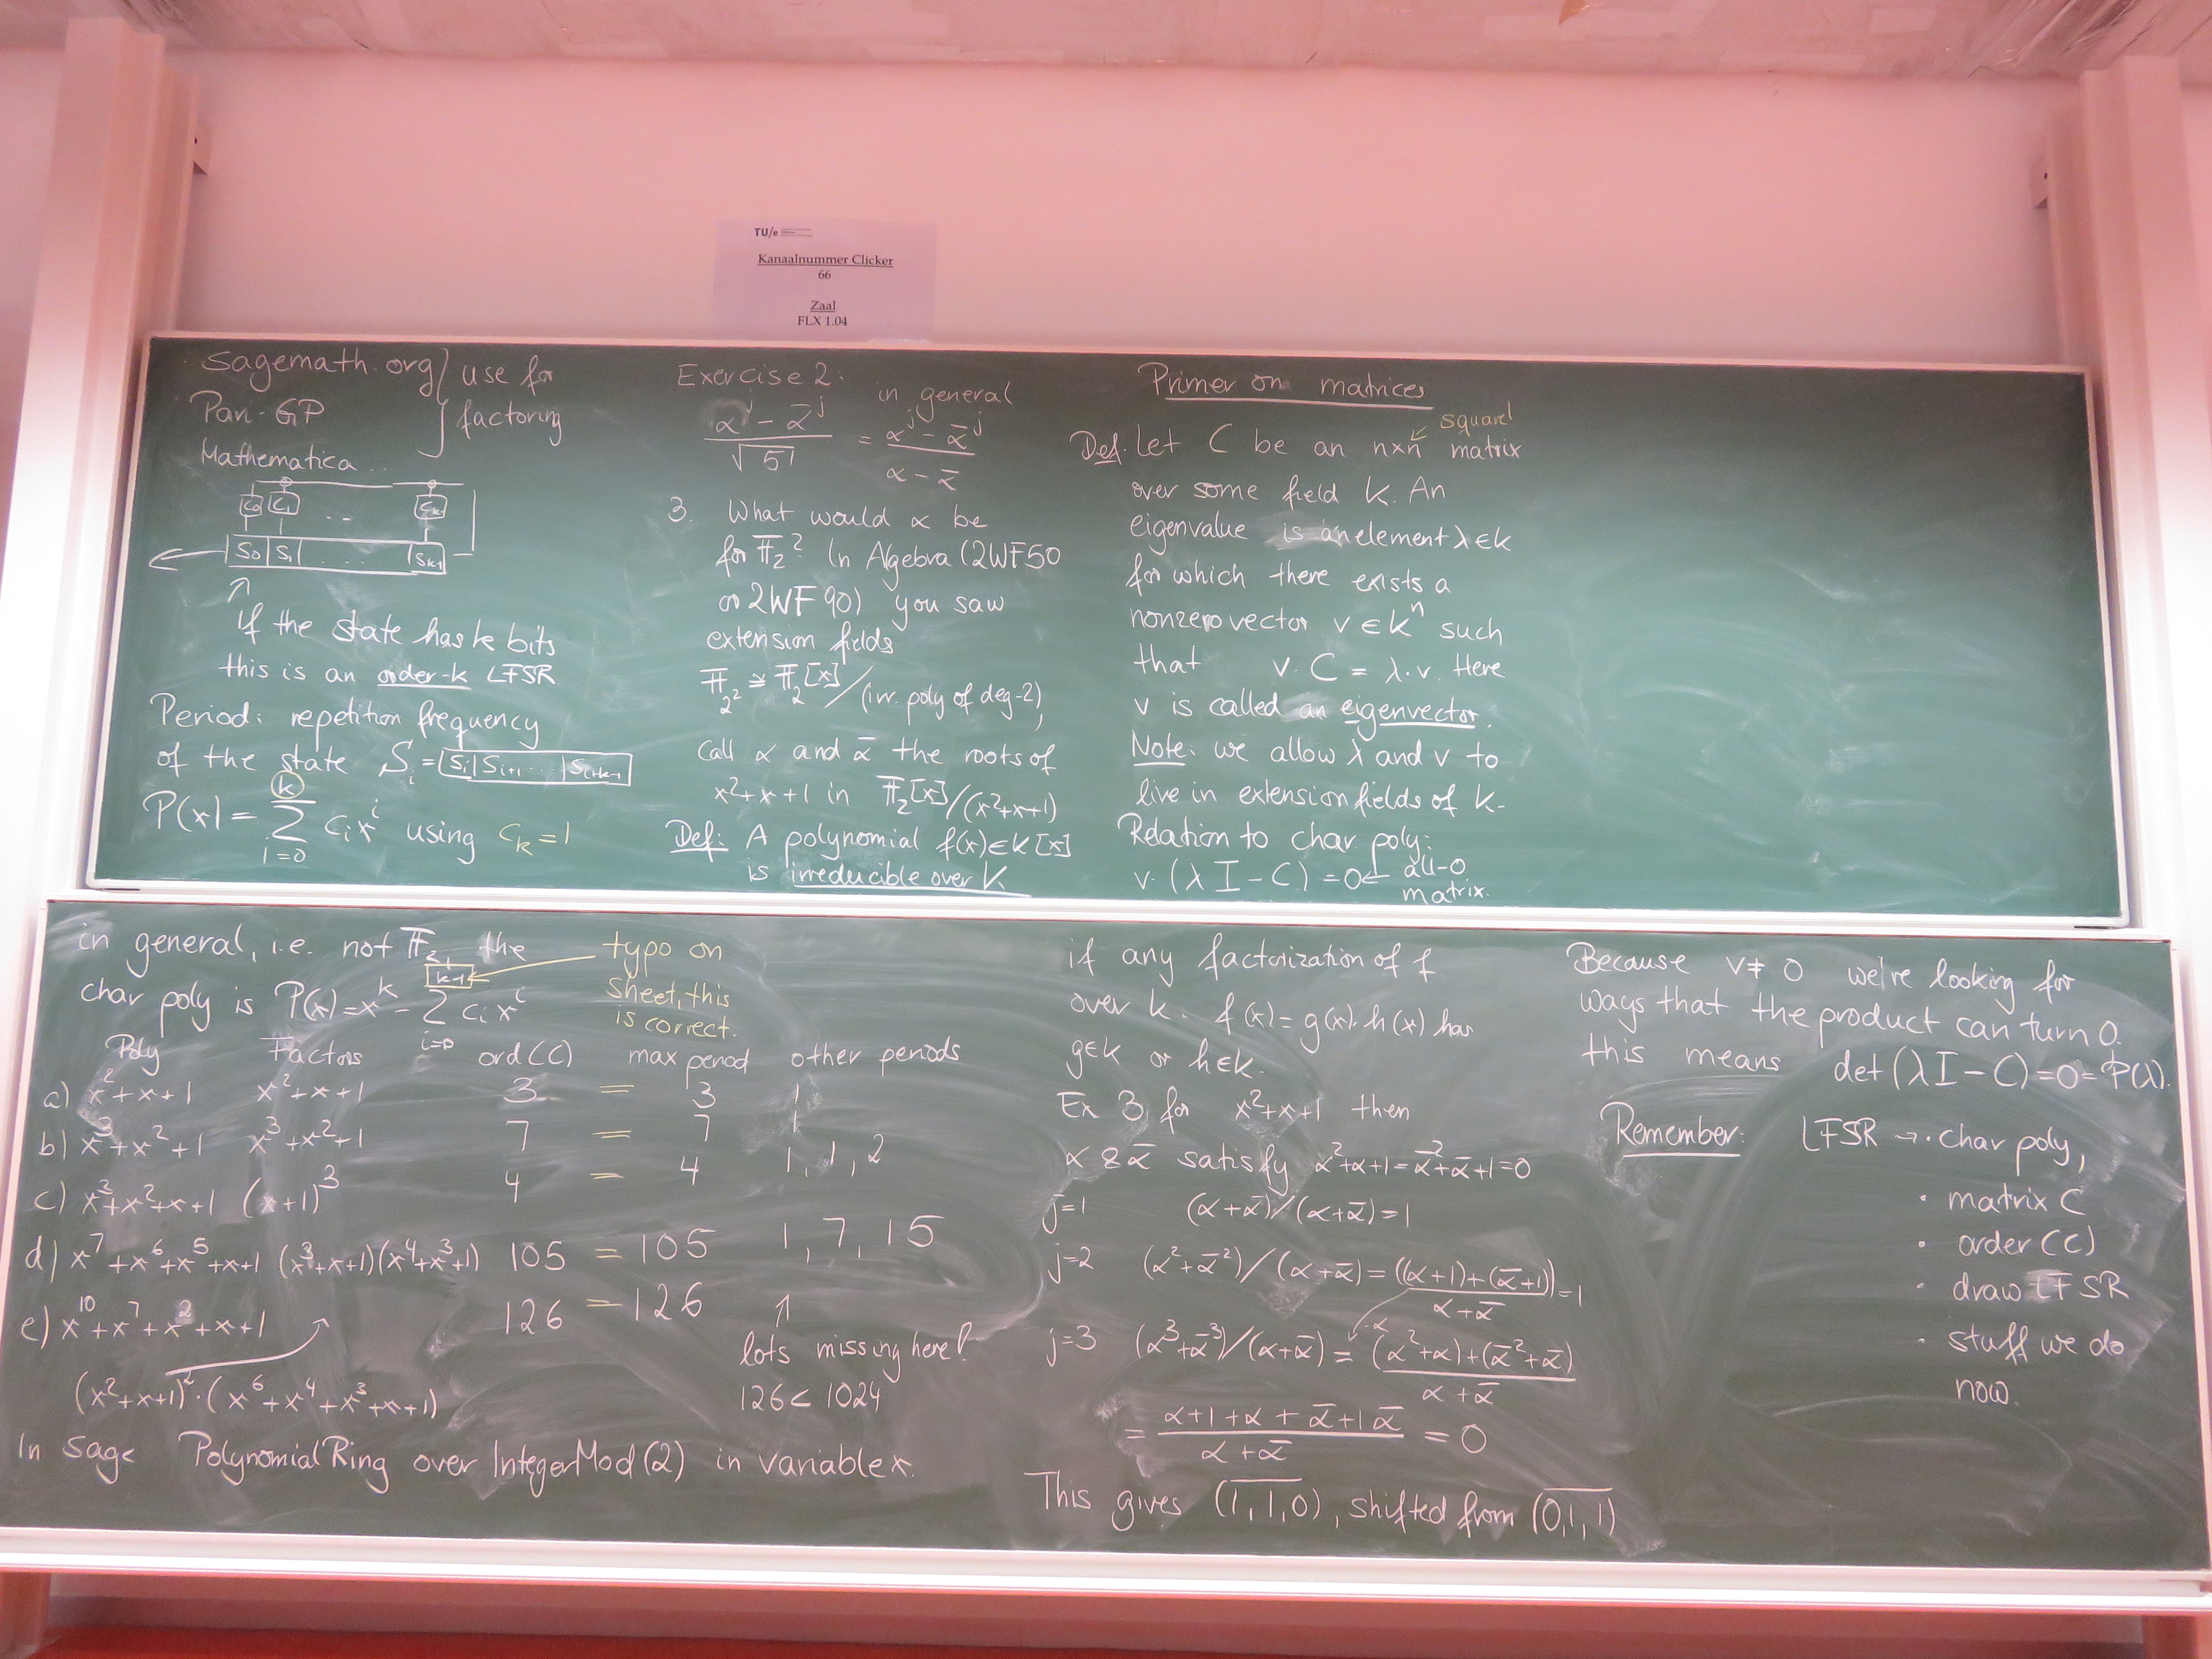 TU/e
Kanaalnummer Clicker
66
Zaal
FLX 1.04
sagemath.org } use for
Pari-GP factoring
Mathematica ..
C0 C1 ... Ck-1
S0 | S1 | ... | Sk-1
if the state has k bits
this is an order-k LFSR
Period: repetition frequency
of the state S_i = [s_i | s_{i+1} ... | s_{i+k-1}]
P(x) = Σ_{i=0}^{k} c_i x^i using c_k = 1
Exercise 2:
in general
(α^j - ᾱ^j)/√5 = (α^j - ᾱ^j)/(α - ᾱ)
3. What would α be
for F_2? In Algebra (2WF50
or 2WF90) you saw
extension fields
F_{2^2} ≅ F_2[x]/(irr. poly of deg-2),
call α and ᾱ the roots of
x²+x+1 in F_2[x]/(x²+x+1)
Def: A polynomial f(x)∈K[x]
is irreducible over K
Primer on matrices
square!
Def. Let C be an n×n matrix
over some field K. An
eigenvalue is an element λ∈K
for which there exists a
nonzero vector v∈K^n such
that v·C = λ·v. Here
v is called an eigenvector.
Note: we allow λ and v to
live in extension fields of K.
Relation to char poly:
v·(λI-C) = 0 ← all-0
matrix.
in general, i.e. not F_2, the
char poly is P(x) = x^k - Σ_{i=0}^{k-1} c_i x^i
typo on
sheet, this
is correct.
Poly Factors ord(C) max period other periods
a) x²+x+1 x²+x+1 3 = 3 1
b) x³+x²+1 x³+x²+1 7 = 7 1
c) x³+x²+x+1 (x+1)³ 4 = 4 1, 1, 2
d) x⁷+x⁶+x⁵+x+1 (x³+x+1)(x⁴+x³+1) 105 = 105 1, 7, 15
e) x¹⁰+x⁷+x²+x+1 126 = 126
(x²+x+1)²·(x⁶+x⁴+x³+x+1)
lots missing here!
126 < 1024
In Sage PolynomialRing over IntegerMod(2) in variable x.
if any factorization of f
over K. f(x) = g(x)·h(x) has
g∈K or h∈K.
Ex 3, for x²+x+1 then
α & ᾱ satisfy α²+α+1 = ᾱ²+ᾱ+1 = 0
j=1 (α+ᾱ)/(α+ᾱ) = 1
j=2 (α²+ᾱ²)/(α+ᾱ) = ((α+1)+(ᾱ+1))/(α+ᾱ) = 1
·α
j=3 (α³+ᾱ³)/(α+ᾱ) = ((α²+α)+(ᾱ²+ᾱ))/(α+ᾱ)
= (α+1+α+ᾱ+1ᾱ)/(α+ᾱ) = 0
This gives (1,1,0), shifted from (0,1,1)
Because v≠0 we're looking for
ways that the product can turn 0.
this means det(λI-C) = 0 = P(λ).
Remember: LFSR → · char poly,
· matrix C
· order(C)
· draw LFSR
· stuff we do
now.